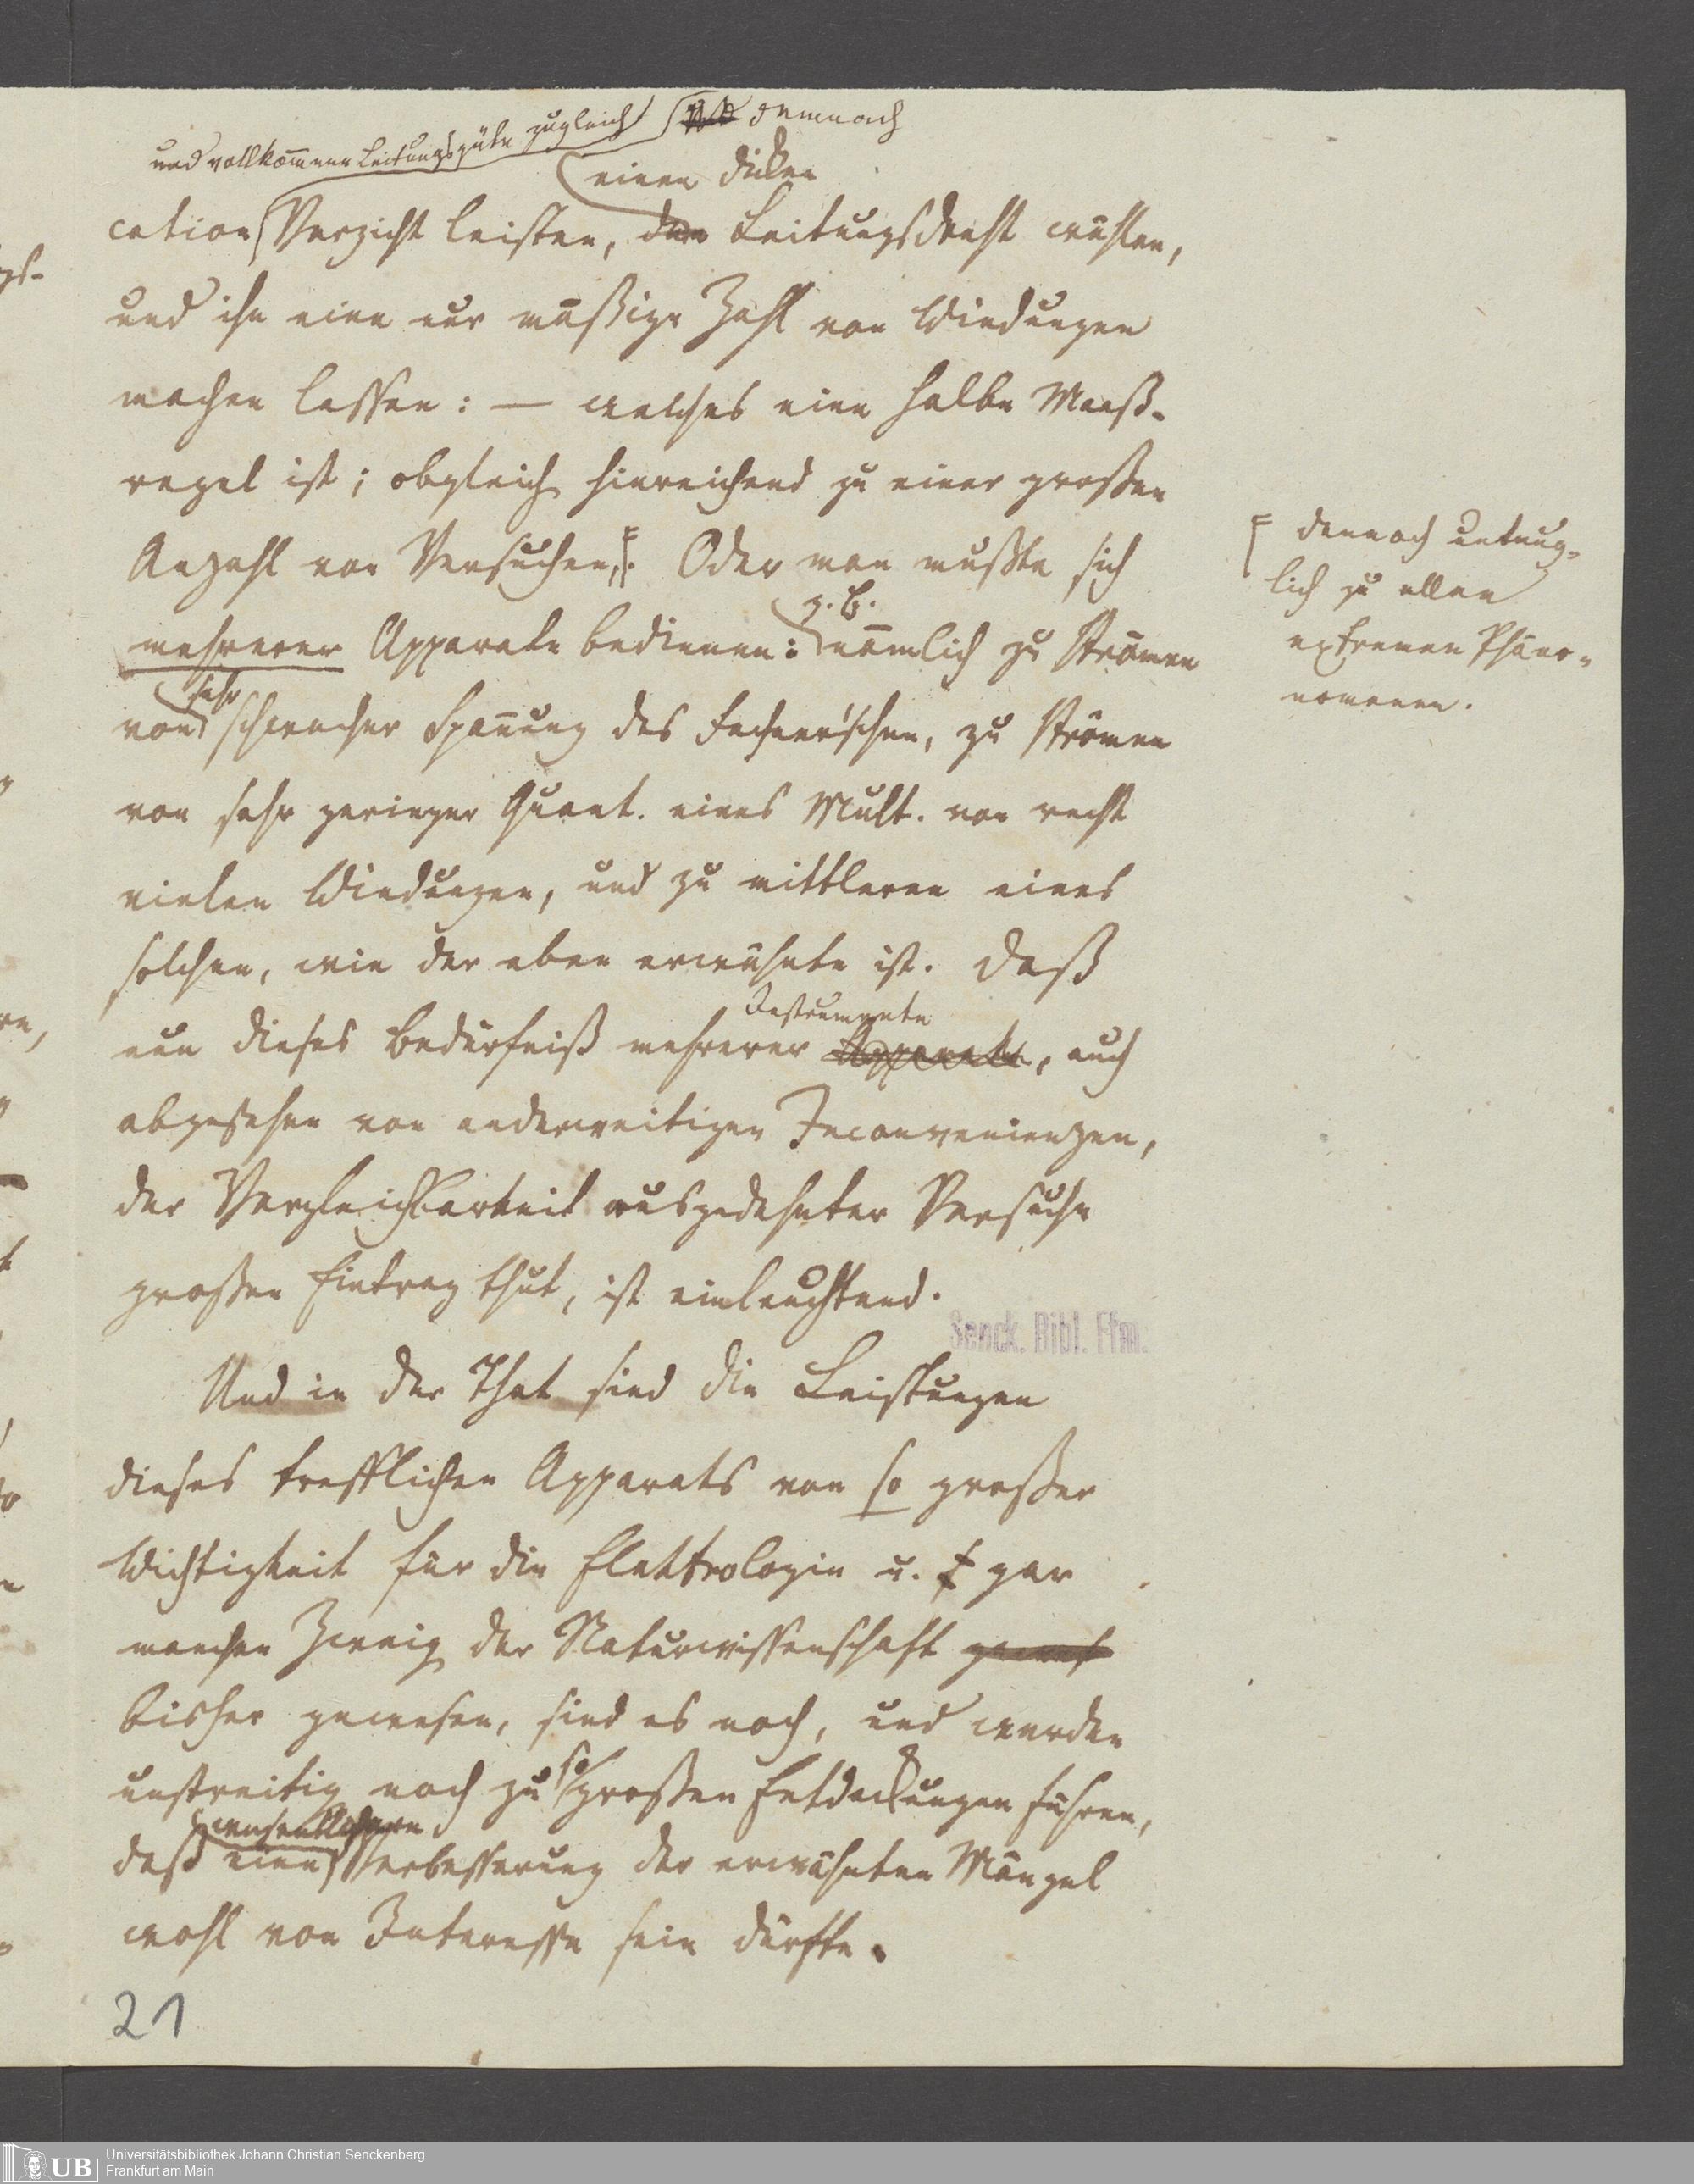 und vollkommene Leitungsgüte zugleich demnach
einen dicken
cation Verzicht leisten, den Leitungsdraht wählen,
und ihn eine nur mäßige Zahl von Windungen
machen lassen: — welches eine halbe Maaß-
regel ist; obgleich hinreichend zu einer großen
Anzahl von Versuchen. Oder man mußte sich
dennoch untaug-
lich zu allen
extremen Phäno-
nomenen.
z. B.
mehrerer Apparate bedienen: nämlich zu Strömen
sehr
von schwacher Spannung des Fechner'schen, zu Strömen
von sehr geringer Quant. eines Mult. von recht
vielen Windungen, und zu mittleren eines
solchen, wie der eben erwähnte ist. Daß
Instrumente
nun dieses Bedürfniß mehrerer Apparate, auch
abgesehen von anderweitigen Inconvenienzen,
der Vergleichbarkeit ausgedehnter Versuche
großen Eintrag thut, ist einleuchtend.
Senck. Bibl. Ffm.
Und in der That sind die Leistungen
dieses trefflichen Apparats von so großer
Wichtigkeit für die Elektrologie u. gar
manchen Zweig der Naturwissenschaft
bisher gewesen, sind es noch, und werden
so
unstreitig noch zu großen Entdeckungen führen,
wesentlichere
daß eine Verbesserung der erwähnten Mängel
wohl von Interesse sein dürfte.
21
UB Universitätsbibliothek Johann Christian Senckenberg
Frankfurt am Main